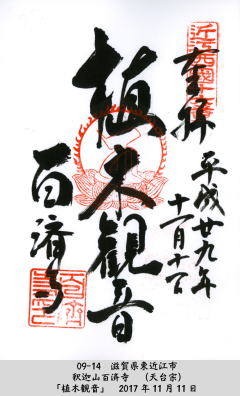 奉拝
平成廿九年
十一月十一日
植木観音
百済寺
09-14 滋賀県東近江市
釈迦山百済寺 (天台宗)
「植木観音」 2017年11月11日